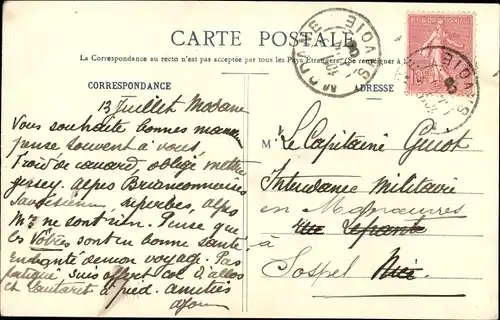 CARTE POSTALE
La Correspondance au recto n'est pas acceptée par tous les Pays Étrangers. (Se renseigner à
CORRESPONDANCE
ADRESSE
MODANE
SAVOIE
13 Juillet Modane
Vous souhaite bonnes
pense souvent à vous,
Froid de canard, obligé mettre
jersey. Alpes Briançonnaises
superbes, alpes
Mmes ne sont rien. Pense que
les Vôtres sont en bonne santé.
Enchanté de mon voyage. Pas
fatigué suis col d'allos
et à pied. amitiés
M. Le Capitaine Guiot
Intendance Militaire
en Manœuvres
Rue Lepante
à
Sospel Nice